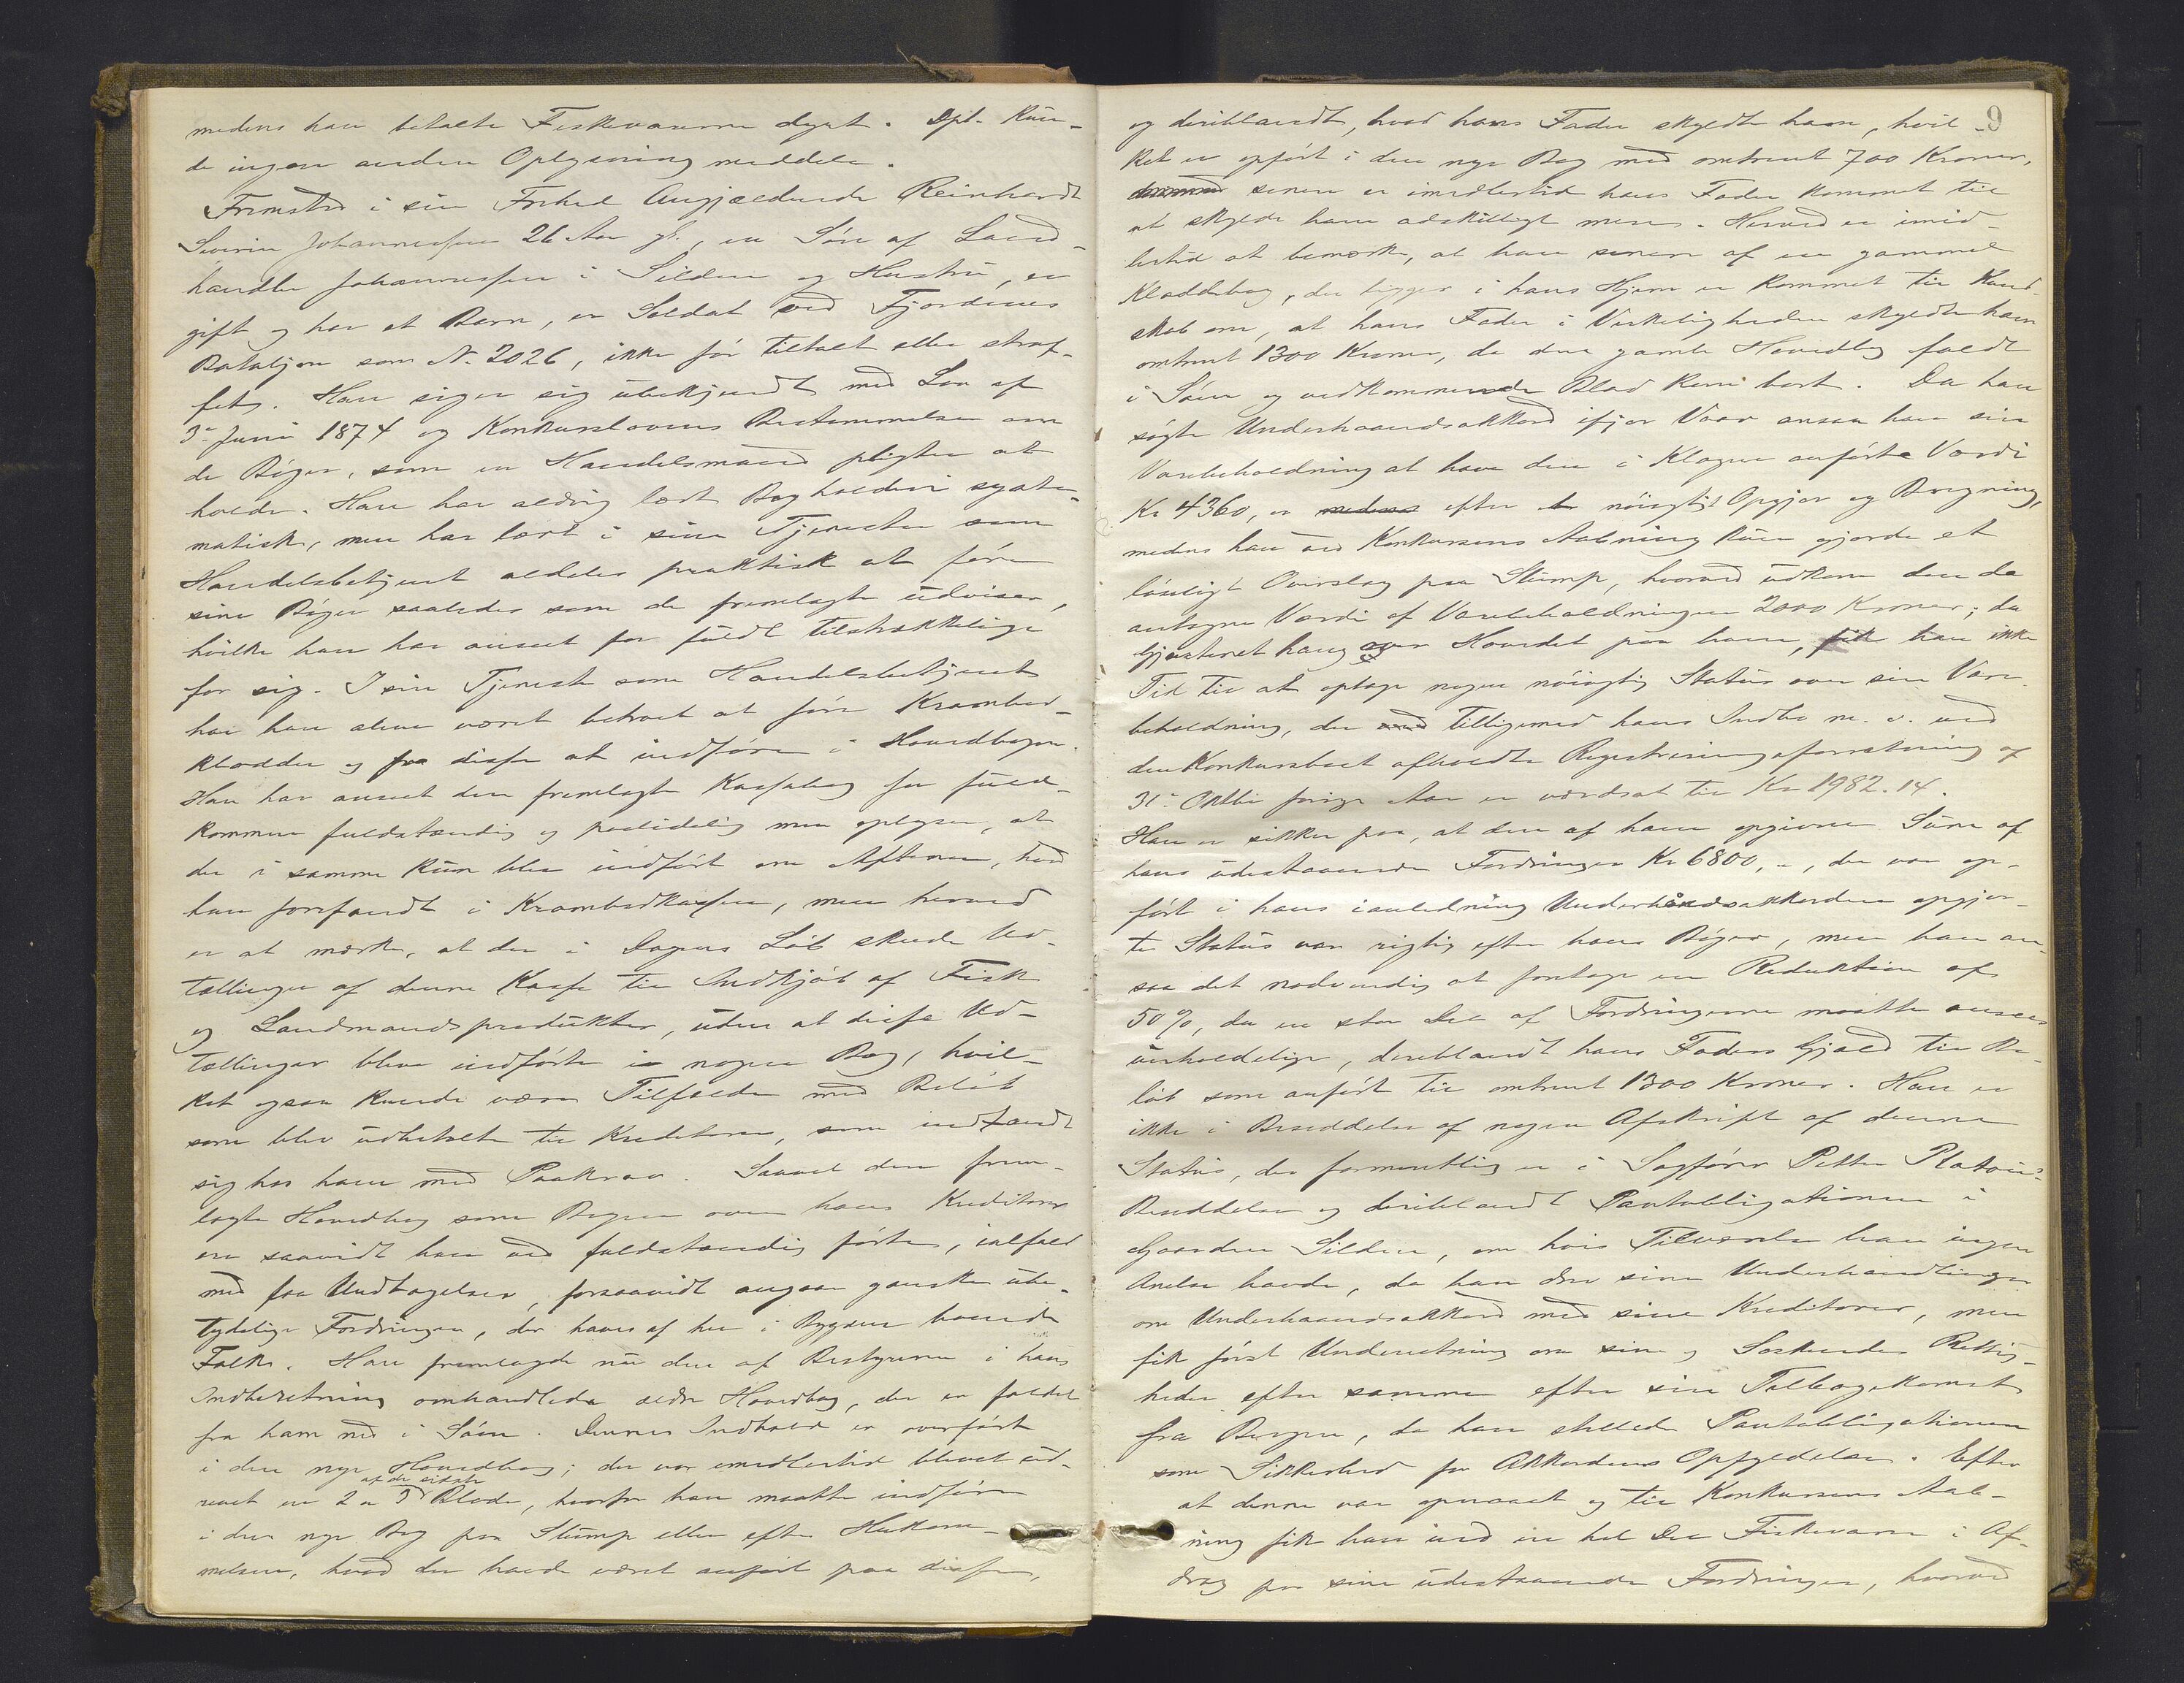 medens han betalte Fiskevarerne dyrt. Dpt. Kun-
de ingen anden Oplysning meddele.
Fremstod i sin Frihed Angjældende Reinhardt
Severin Johannessen 26 Aar gl., en Søn af Land-
handler Johannessen i Silden og Hustru, er
gift og har et Barn, er Soldat ved Fjordenes
Bataljon som No. 2026, ikke før tiltalt eller straf-
fet. Han siger sig ubekjendt med Lov af
3die Juni 1874 og Konkurslovens Bestemmelser om
de Bøger, som en Handelsmand pligter at
holde. Han har aldrig lært Bogholderi syste-
matisk, men har lært i sin Tjeneste som
Handelsbetjent aldeles praktisk at føre
sine Bøger saaledes som de fremlagte udviser,
hvilke han har anseet for fuldt tilstrækkelige
for sig. I sin Tjeneste som Handelsbetjent
har han alene været betroet at føre Krambod-
kladder og fra disse at indføre i Hovedbogen.
Han har anseet den fremlagte Kassabog for fuld-
kommen fuldstændig og paalidelig men oplyser, at
der i samme kun blev indført om Aftenen, hvad
han forefandt i Krambodkassen, men herved
er at mærke, at der i Dagens Løb skede Ud-
tællinger af denne Kasse til Indkjøb af Fisk
og Landmandsprodukter, uden at disse Ud-
tællinger bleve indførte i nogen Bog, hvil-
ket ogsaa kunde være Tilfældet med Beløb
som blev udbetalte til Kreditorer, som indfandt
sig hos ham med Paakrav. Saavel den frem-
lagte Hovedbog som Bogen over hans Kreditorer
er saavidt han ved fuldstændig førte, ialfald
med faa Undtagelser, forsaavidt angaar ganske ube-
tydelige Fordringer, der haves af her i Bygden boende
Folk. Han fremlagde nu den af Bestyreren i hans
Indberetning omhandlede ældre Hovedbog, der er faldet
fra ham ned i Søen. Dennes Indhold er overført
i den nye Hovedbog; der var imidlertid blevet ud-
revet en 2 a 3 af de sidste Blade, hvorfor han maatte indføre
i den nye Bog paa Slump eller efter Hukom-
melsen, hvad der havde været anført paa disse,
9
og deriblandt, hvad hans Fader skyldte ham, hvil-
ket er opført i den nye Bog med omtrent 700 Kroner,
senere er imidlertid hans Fader kommet til
at skylde ham adskilligt mere. Herved er imid-
lertid at bemærke, at han senere af en gammel
Kladdebog, der ligger i hans Hjem er kommet til Kund-
skab om, at hans Fader i Virkeligheden skyldte ham
omtrent 1300 Kroner, da den gamle Hovedbog faldt
i Søen og vedkommende Blad kom bort. Da han
søgte Underhaandsakkord ifjor Vaar ansaa han sin
Varebeholdning at have den i Klagen anførte Værdi
Kr 4360, medens efter nøiagtigt Opgjør og Beregning,
medens han ved Konkursens Aabning kun gjorde et
løseligt Overslag paa Slump, hvorved udkom den da
antagne Værdi af Varebeholdningen 2000 Kroner; da
Gjæsteriet hang over Hovedet paa ham, fik han ikke
Tid til at optage nogen nøiagtig Status over sin Vare-
beholdning, der tilligemed hans Indbo m. v. ved
den Konkursboet afholdte Registreringsforretning af
31te Oktbr forrige Aar er værdsat til Kr 1982.14.
Han er sikker paa, at den af ham opgivne Sum af
hans udestaaende Fordringer Kr 6800,-, der var op-
ført i hans i anledning Underhåndsakkorden opgjor-
te Status var rigtig efter hans Bøger, men han an-
saa det nødvendig at foretage en Reduktion af
50 %, da en stor Del af Fordringerne maatte ansees
uerholdelige, deriblandt hans Faders Gjæld til Be-
løb som anført til omtrent 1300 Kroner. Han er
ikke i Besiddelse af nogen Afskrift af denne
Status, der formentlig er i Sagfører Petter Platous
Besiddelse og deriblandt Pantobligationen i
Gaarden Silden, om hvis Tilværelse han ingen
Anelse havde, da han drev sine Underhandlinger
om Underhaandsakkord med sine Kreditorer, men
fik først Underretning om sine og Søskendes Rettig-
heder efter samme efter sin Tilbagekomst
fra Bergen, da han stillede Pantobligationen
som Sikkerhed for Akkordens Opfyldelse. Efter
at denne var opnaaet og til Konkursens Aab-
ning fik han ind en hel Del Fiskevarer i Af-
drag paa sine udestaaende Fordringer, hvorved